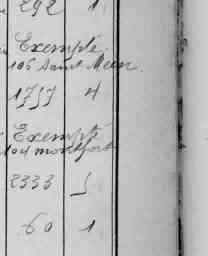 292 1
Exempté
106 Saint Meen
1757 4
Exempté
104 montfort
2333 5
60 1